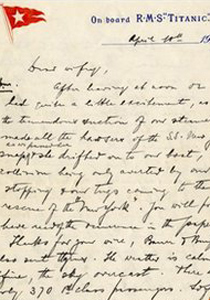 On board R.M.S "TITANIC".
April 10th, 19
Dear wifey,
After leaving at noon we
had quite a little excitement, as
the tremendous suction of our steamer
made all the hawsers of the S.S. New
snap & she drifted on to our boat, a
collision being only averted by our
stopping & our tugs coming to the
rescue of the "New York". You will
have read the in the paper
Thanks for your wire,
sent theirs. The weather is calm
fine, the sky overcast. There
only 370 1st class passengers.